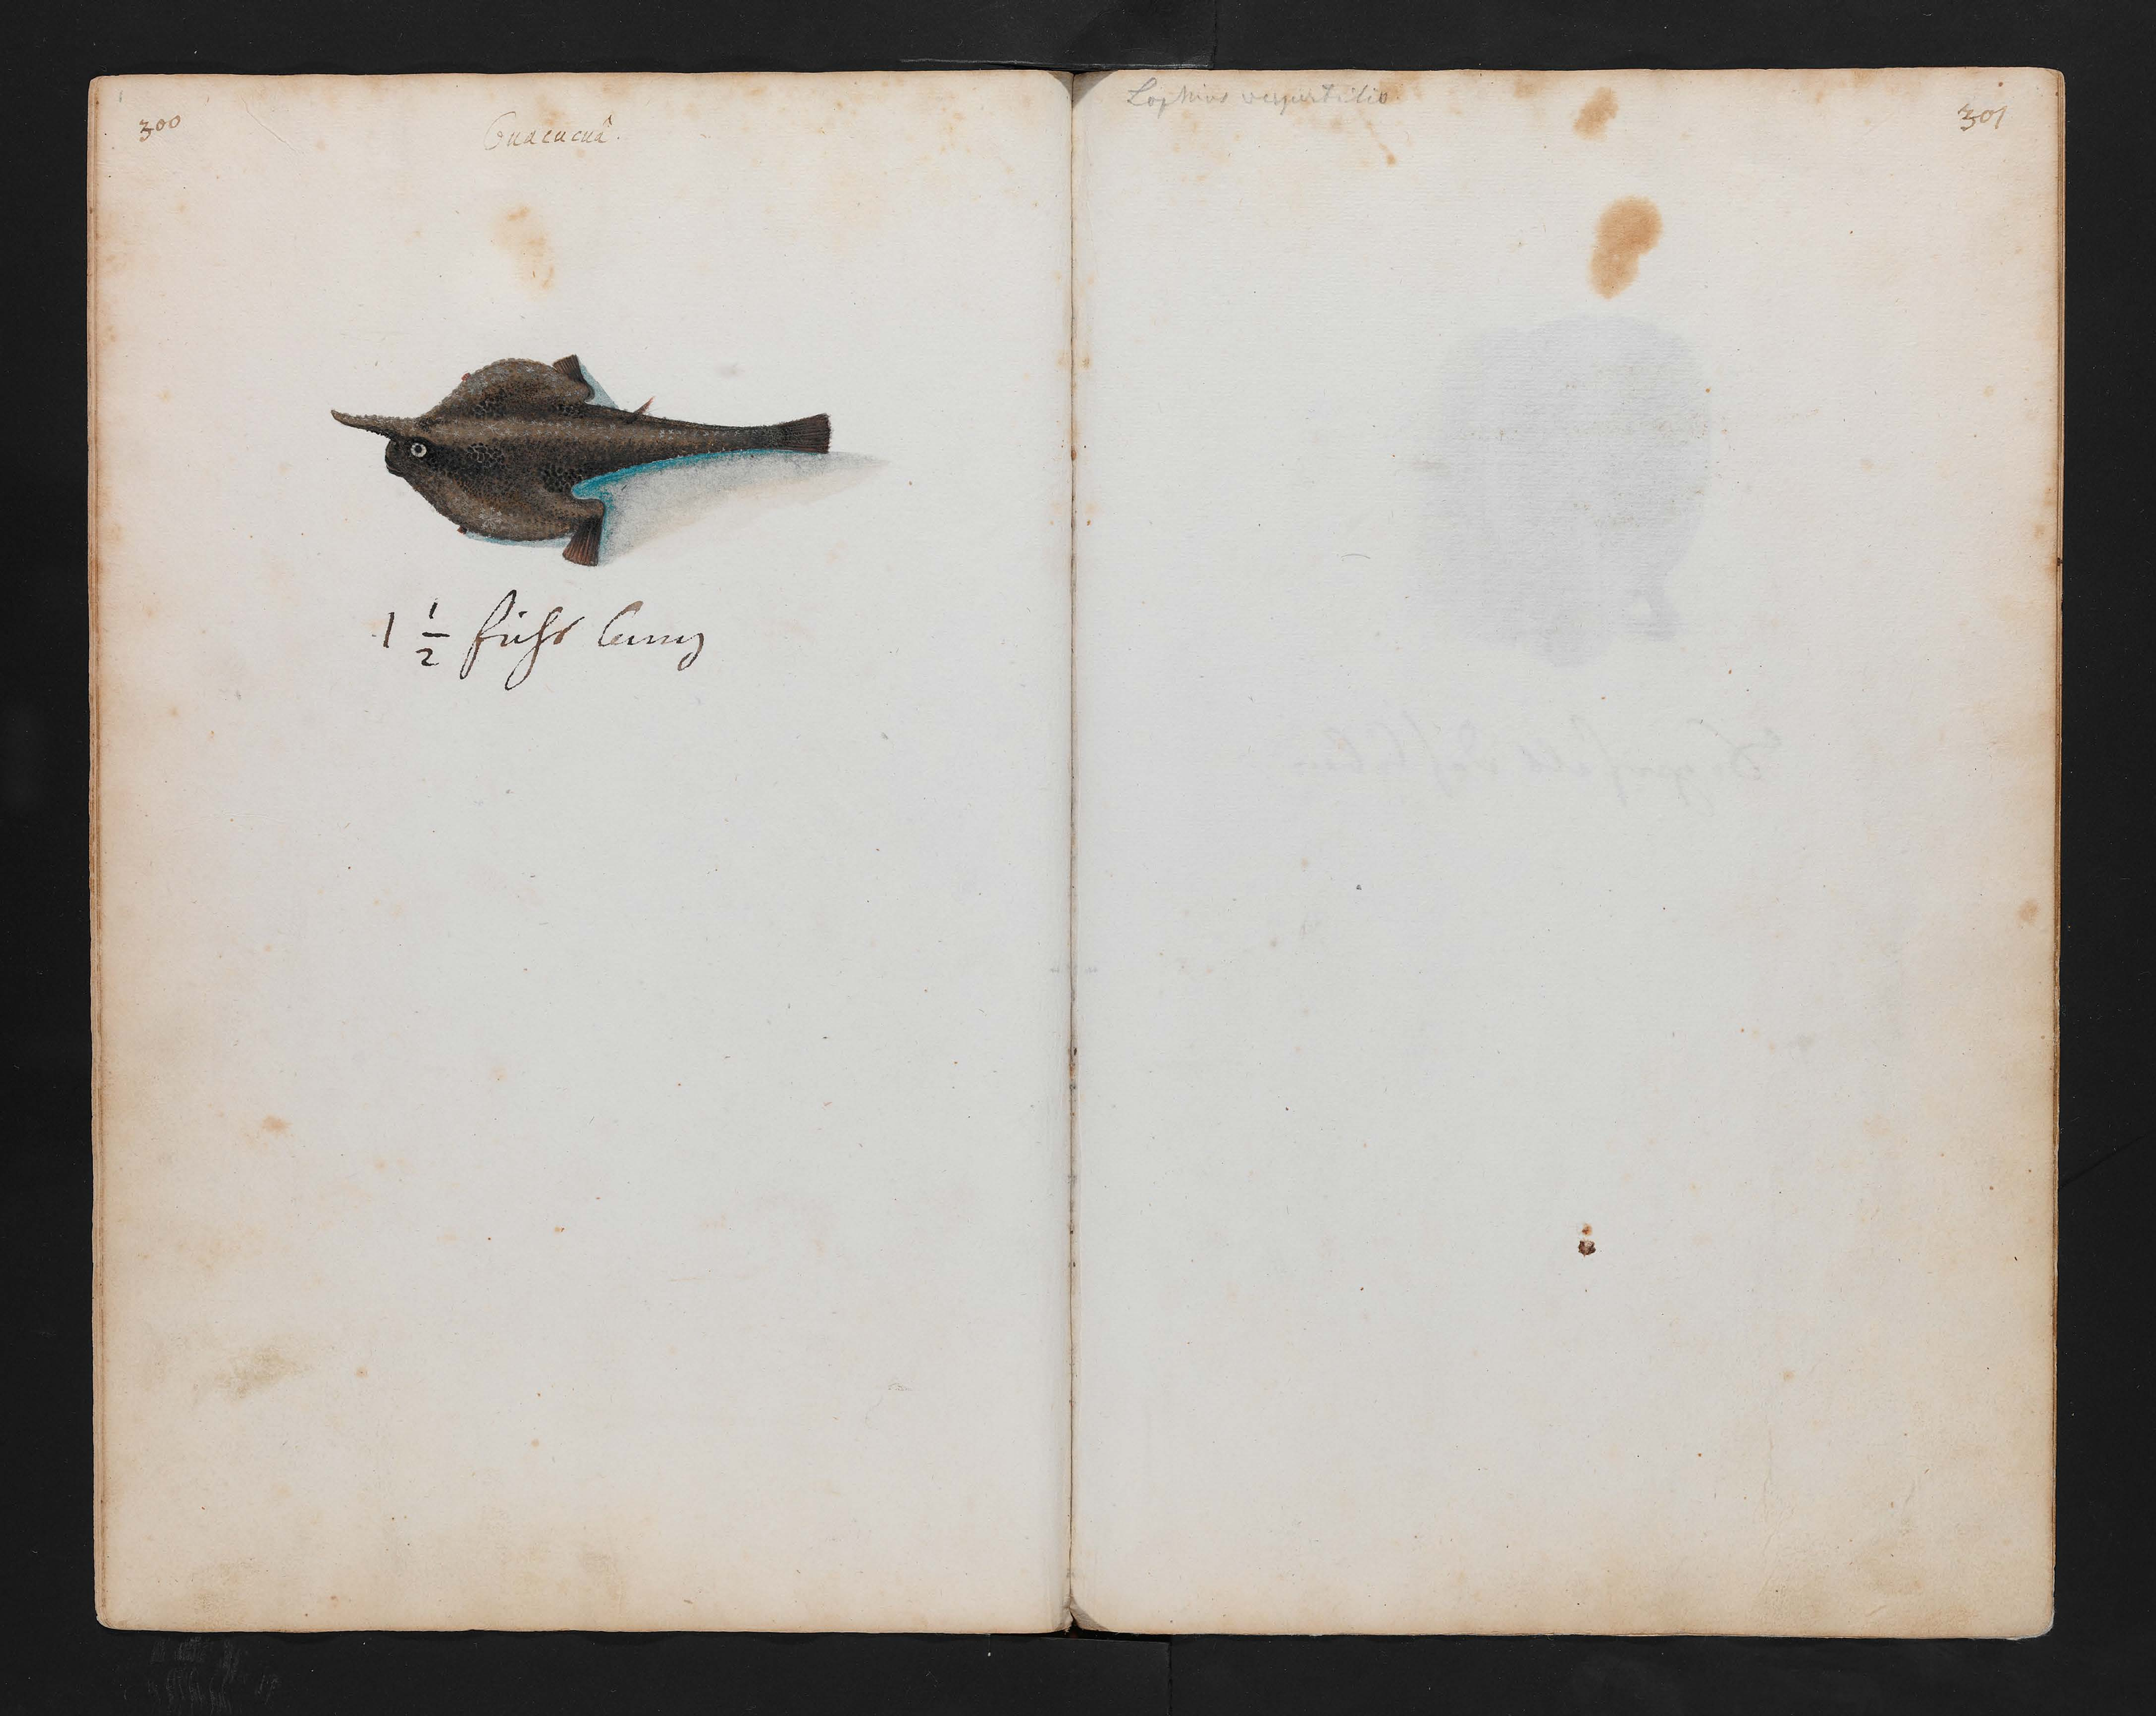 300
Guacucuâ.
1 1/2 fuhs lang
Lophius vespertilio.
301